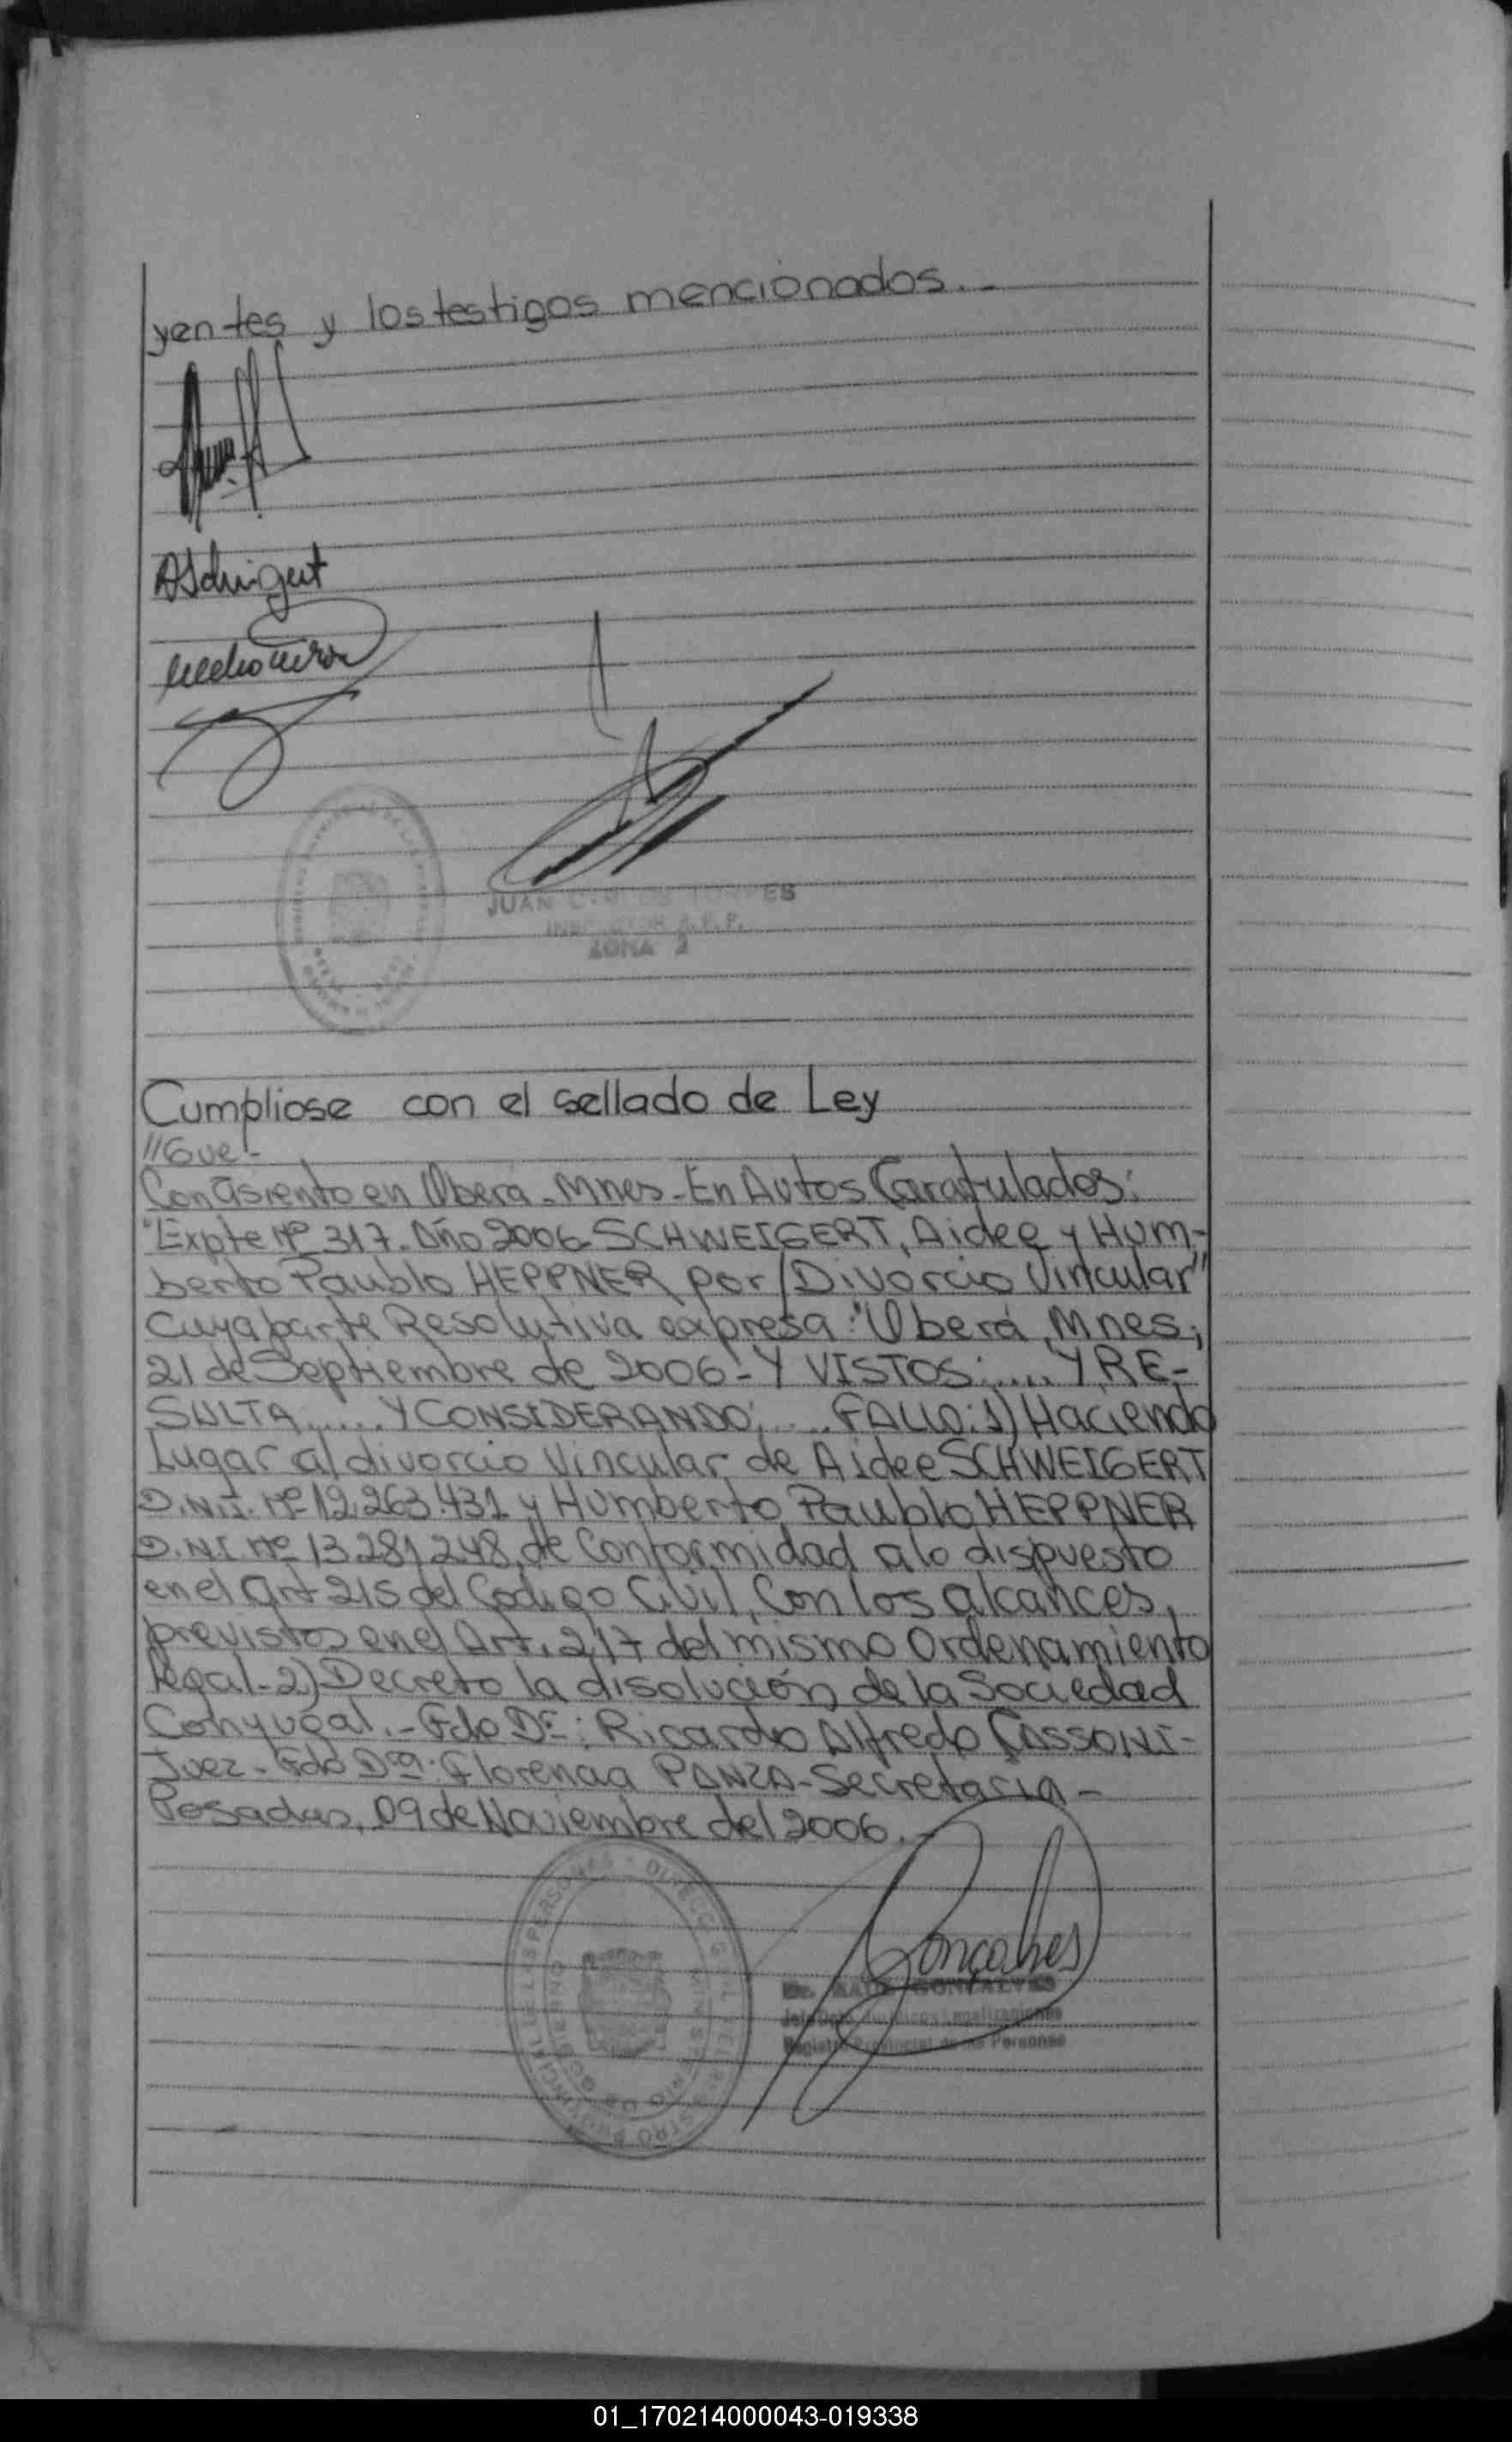 yentes y los testigos mencionados.-
ASchwigert
JUAN CARLOS TORRES
INSPECTOR R.P.P.
ZONA 2
Cumpliose con el sellado de Ley
//Gue!-
Con asiento en Oberá-Mnes-En Autos Caratulados:
"Expte Nº 317. Año 2006-SCHWEIGERT, Aidee y Hum-
berto Paublo HEPPNER por/Divorcio Vincular"
Cuya parte Resolutiva expresa: "Oberá, Mnes;
21 de Septiembre de 2006-Y VISTOS:.... Y RE-
SULTA...... Y CONSIDERANDO:.... FALLO: 1) Haciendo
Lugar al divorcio Vincular de Aidee SCHWEIGERT
D.N.I. Nº 12.263.431 y Humberto Paublo HEPPNER
D.N.I. Nº 13.281.248, de Conformidad a lo dispuesto
en el Art 215 del Codigo Civil, Con los alcances,
previstos en el Art. 217 del mismo Ordenamiento
legal-2) Decreto la disolución de la Sociedad
Conyugal.-Fdo Dr: Ricardo Alfredo CASSONI-
Juez-Fdo Dra: Florencia PANZA-Secretaria-
Posadas, 09 de Noviembre del 2006.-
Gonçalves
Dr. RAUL GONCALVES
Jefe Dpto. Legalizaciones
Registro Provincial de las Personas
REGISTRO PROVINCIAL DE LAS PERSONAS
MINISTERIO DE GOBIERNO
01_170214000043-019338